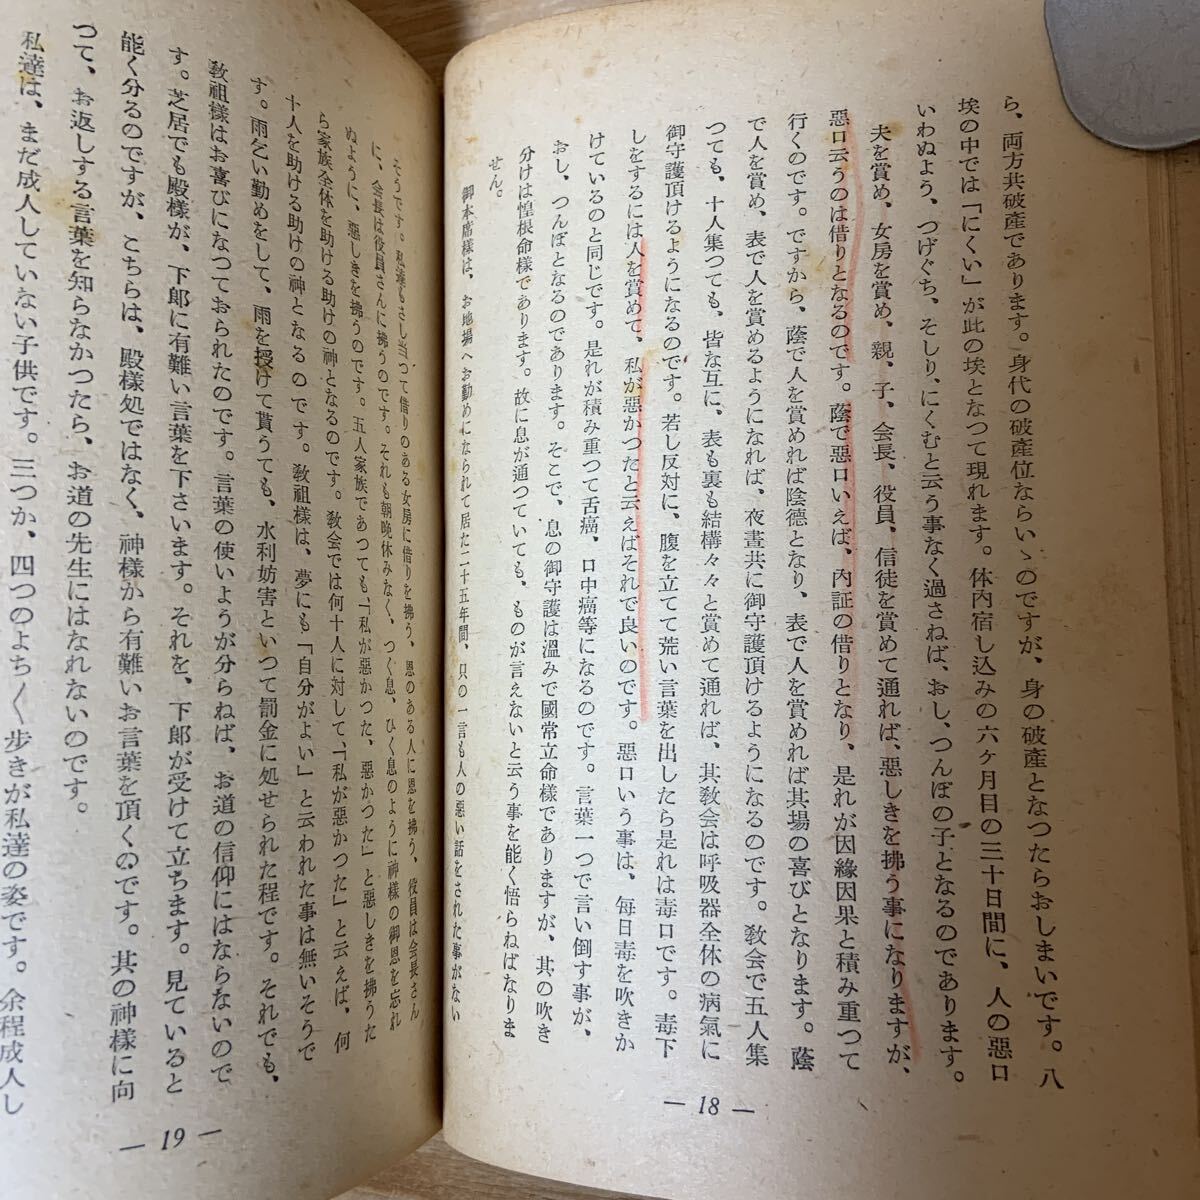 ら、両方共破産であります。身代の破産位ならいゝのですが、身の破産となつたらおしまいです。八
埃の中では「にくい」が此の埃となつて現れます。体内宿し込みの六ケ月目の三十日間に、人の惡口
いわぬよう、つげぐち、そしり、にくむと云う事なく過さねば、おし、つんぼの子となるのであります。
夫を賞め、女房を賞め、親、子、会長、役員、信徒を賞めて通れば、惡しきを拂う事になりますが、
惡口云うのは借りとなるのです。蔭で惡口いえば、内証の借りとなり、是れが因緣因果と積み重つて
行くのです。ですから、蔭で人を賞めれば陰德となり、表で人を賞めれば其場の喜びとなります。蔭
で人を賞め、表で人を賞めるようになれば、夜晝共に御守護頂けるようになるのです。敎会で五人集
つても、十人集つても、皆な互に、表も裏も結構々々と賞めて通れば、其敎会は呼吸器全体の病氣に
御守護頂けるようになるのです。若し反対に、腹を立てて荒い言葉を出したら是れは毒口です。毒下
しをするには人を賞めて、私が惡かつたと云えばそれで良いのです。惡口いう事は、每日毒を吹きか
けているのと同じです。是れが積み重つて舌癌、口中癌等になるのです。言葉一つで言い倒す事が、
おし、つんぼとなるのであります。そこで、息の御守護は溫みで國常立命樣でありますが、其の吹き
分けは惶根命樣であります。故に息が通つていても、ものが言えないと云う事を能く悟らねばなりま
せん。
御本席樣は、お地場へお勤めになられて居た二十五年間、只の一言も人の惡い話をされた事がない
— 18 —
そうです。私達もさし当つて借りのある女房に借りを拂う、恩のある人に恩を拂う、役員は会長さん
に、会長は役員さんに拂うのです。それも朝晩休みなく、つく息、ひく息のように神樣の御恩を忘れ
ぬように、惡しきを拂うのです。五人家族であつても、「私が惡かつた、惡かつた」と惡しきを拂うた
ら家族全体を助ける助けの神となるのです。敎会では何十人に対して、「私が惡かつた」と云えば、何
十人を助ける助けの神となるのです。敎祖樣は、夢にも「自分がよい」と云われた事は無いそうで
す。雨乞い勤めをして、雨を授けて貰うても、水利妨害といつて罰金に処せられた程です。それでも、
敎祖樣はお喜びになつておられたのです。言葉の使いようが分らねば、お道の信仰にはならないので
す。芝居でも殿樣が、下郎に有難い言葉を下さいます。それを、下郎が受けて立ちます。見ていると
能く分るのですが、こちらは、殿樣処ではなく、神樣から有難いお言葉を頂くのです。其の神樣に向
つて、お返しする言葉を知らなかつたら、お道の先生にはなれないのです。
私達は、まだ成人していない子供です。三つか、四つのよち〱步きが私達の姿です。余程成人し
— 19 —